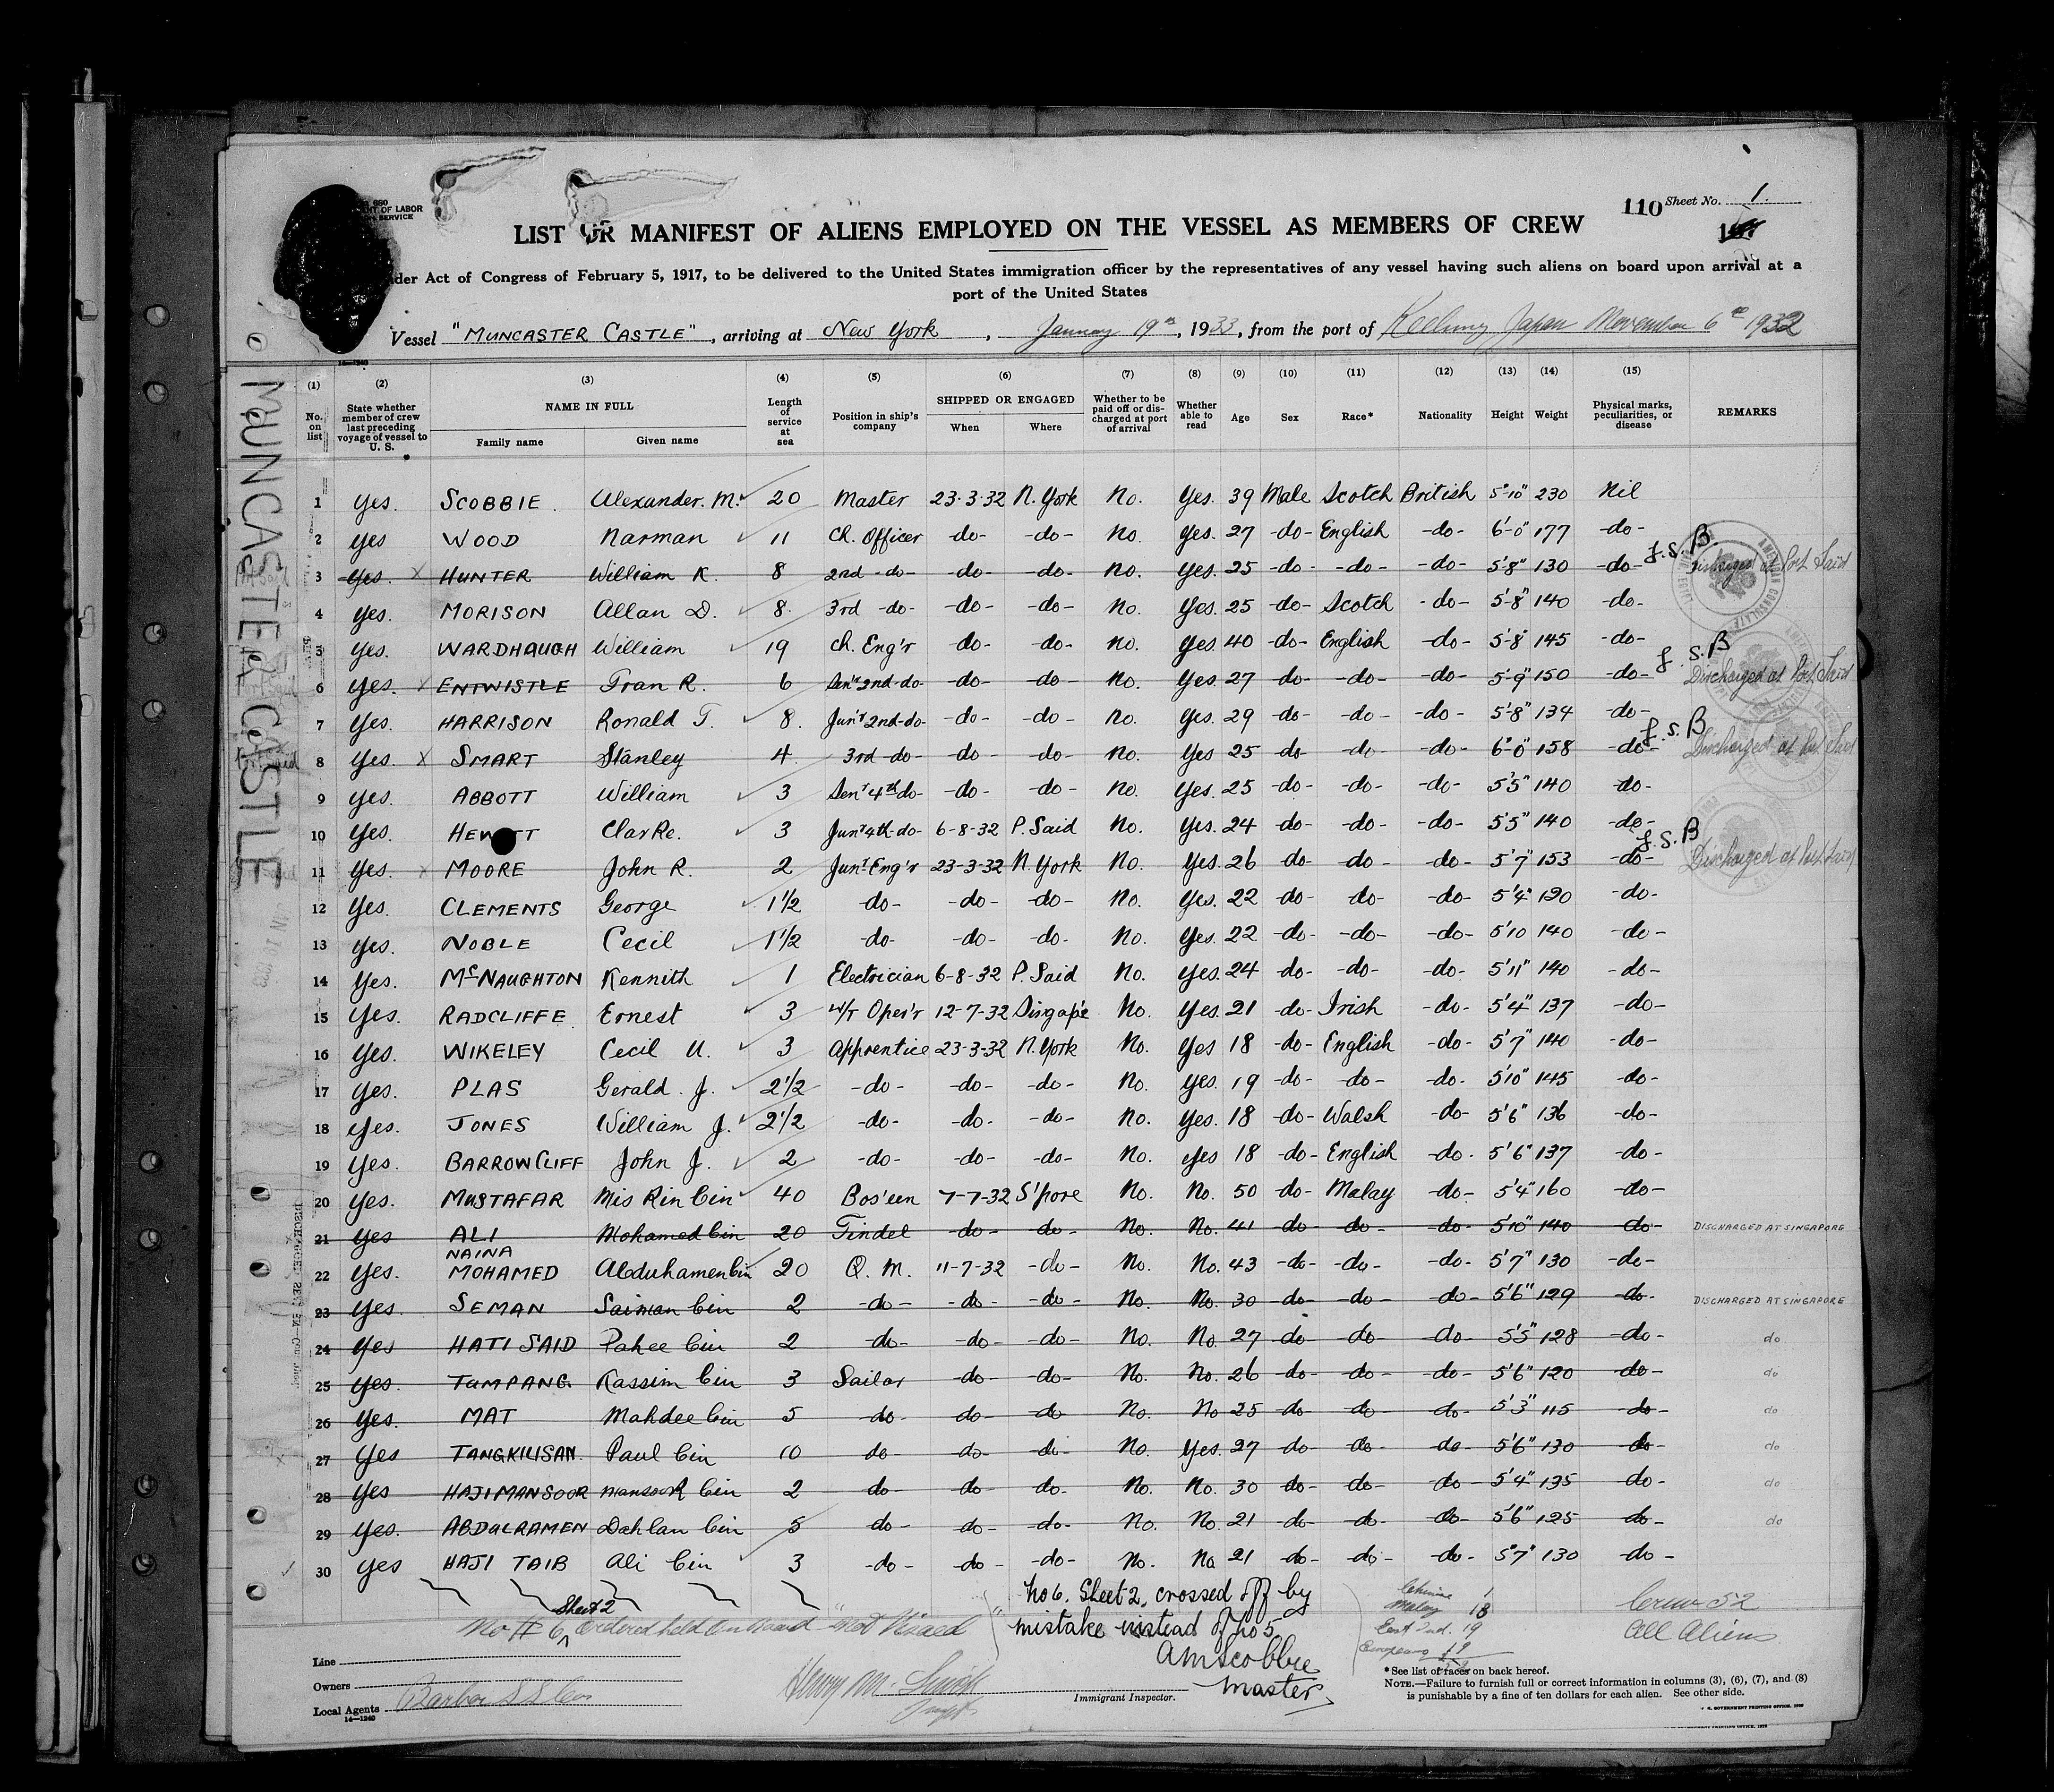 680
OF LABOR
SERVICE
110 Sheet No. 1.
LIST OR MANIFEST OF ALIENS EMPLOYED ON THE VESSEL AS MEMBERS OF CREW
der Act of Congress of February 5, 1917, to be delivered to the United States immigration officer by the representatives of any vessel having such aliens on board upon arrival at a
port of the United States
Vessel "MUNCASTER CASTLE", arriving at New York, January 19th, 1933, from the port of Keelung Japan November 6th 1932
14—1240
MUNCASTER CASTLE
(1) (2) (3) (4) (5) (6) (7) (8) (9) (10) (11) (12) (13) (14) (15)
No. on list State whether member of crew last preceding voyage of vessel to U. S. NAME IN FULL Family name Given name Length of service at sea Position in ship's company SHIPPED OR ENGAGED When Where Whether to be paid off or discharged at port of arrival Whether able to read Age Sex Race* Nationality Height Weight Physical marks, peculiarities, or disease REMARKS
1 Yes. SCOBBIE. Alexander. M. 20 Master 23-3-32 N. York No. Yes. 39 Male Scotch British 5'-10" 230 Nil
2 Yes WOOD Narman 11 Ch. Officer -do- -do- No. Yes. 27 -do- English -do- 6'-0" 177 -do-
3 Yes. X HUNTER William K. 8 2nd -do- -do- -do- No. Yes. 25 -do- -do- -do- 5'-8" 130 -do- J.S.B. Discharged at Port Said
4 Yes. MORISON Allan D. 8. 3rd -do- -do- -do- No. Yes. 25 -do- Scotch -do- 5'-8" 140 -do-
5 Yes. WARDHAUGH William 19 Ch. Eng'r -do- -do- No. Yes. 40 -do- English -do- 5'-8" 145 -do-
6 Yes. X ENTWISTLE Fran R. 6 Sen'r 2nd-do- -do- -do- No. Yes. 27 -do- -do- -do- 5'-9" 150 -do- J.S.B Discharged at Port Said
7 Yes. HARRISON Ronald T. 8. Jun'r 2nd-do- -do- -do- No. Yes. 29 -do- -do- -do- 5'-8" 134 -do-
8 Yes. X SMART Stanley 4 3rd-do- -do- -do- No. Yes 25 -do- -do- -do- 6'-0" 158 -do- J.S.B Discharged at Port Said
9 Yes. ABBOTT William 3 Sen'r 4th do- -do- -do- No. Yes. 25 -do- -do- -do- 5'5" 140 -do-
10 Yes. HEW TT Clarke. 3 Jun'r 4th-do- 6-8-32 P. Said No. Yes. 24 -do- -do- -do- 5'5" 140 -do-
11 Yes. X MOORE John R. 2 Jun'r Eng'r 23-3-32 N. York No. Yes. 26 -do- -do- -do- 5'7" 153 -do- J.S.B Discharged at Port Said
12 Yes. CLEMENTS George 1½ -do- -do- -do- No. Yes. 22 -do- -do- -do- 5'4" 130 -do-
13 Yes. NOBLE Cecil 1½ -do- -do- -do- No. Yes. 22 -do- -do- -do- 5'10 140 -do-
14 Yes. McNAUGHTON Kennith 1 Electrician 6-8-32 P. Said No. Yes. 24 -do- -do- -do- 5'11" 140 -do-
15 Yes. RADCLIFFE Ernest 3 W/T Oper'r 12-7-32 Singap'e No. Yes. 21 -do- Irish -do- 5'4" 137 -do-
16 Yes. WIKELEY Cecil U. 3 Apprentice 23-3-32 N. York No. Yes 18 -do- English -do- 5'7" 140 -do-
17 Yes. PLAS Gerald. J. 2½ -do- -do- -do- No. Yes. 19 -do- -do- -do- 5'10" 145 -do-
18 Yes. JONES William J. 2½ -do- -do- -do- No. Yes. 18 -do- Walsh -do- 5'6" 136 -do-
19 Yes. BARROWCLIFF John J. 2 -do- -do- -do- No. Yes 18 -do- English -do- 5'6" 137 -do-
20 Yes. MUSTAFAR Mis Rin bin 40 Bos'un 7-7-32 S'pore No. No. 50 -do- Malay -do- 5'4" 160 -do-
21 Yes ALI Mohamed bin 20 Tindel -do- -do- No. No. 41 -do- -do- -do- 5'10" 140 -do- DISCHARGED AT SINGAPORE
22 Yes. NAINA MOHAMED Abduhamen bin 20 Q. M. 11-7-32 -do- No. No. 43 -do- -do- -do- 5'7" 130 -do-
23 Yes. SEMAN Saiman bin 2 -do- -do- -do- No. No. 30 -do- -do- -do- 5'6" 129 -do- DISCHARGED AT SINGAPORE
24 Yes HATI SAID Pahee bin 2 -do- -do- -do- No. No. 27 -do- -do- -do- 5'5" 128 -do- do
25 Yes. TUMPANG Kassim bin 3 Sailor -do- -do- No. No. 26 -do- -do- -do- 5'6" 120 -do- do
26 Yes. MAT Mahdee bin 5 -do- -do- -do- No. No 25 -do- -do- -do- 5'3" 115 -do- do
27 Yes TANGKILISAN. Paul bin 10 do- -do- -do- No. Yes. 27 -do- -do- -do- 5'6" 130 -do- do
28 Yes HAJI MANSOOR Mansoor bin 2 -do- -do- -do- No. No. 30 -do- -do- -do- 5'4" 135 -do- do
29 Yes. ABDULRAMEN Dahlan bin 5 -do- -do- -do- No. No. 21 -do- -do- -do- 5'6" 125 -do- do
30 Yes HAJI TAIB Ali bin 3 -do- -do- -do- No. No 21 -do- -do- -do- 5'7" 130 -do-
Sheet 2
No # 6 ordered held on board "not Visaed"
No 6. Sheet 2, crossed off by
mistake instead of No 5
AMScobbie
Master
Chinese 1
Malay 18
East Ind. 19
Europeans
Crew 52
All Aliens
Line
Owners
Local Agents Barber S S Co
14—1240
Henry M.
Immigrant Inspector.
*See list of races on back hereof.
NOTE.—Failure to furnish full or correct information in columns (3), (6), (7), and (8)
is punishable by a fine of ten dollars for each alien. See other side.
U. S. GOVERNMENT PRINTING OFFICE